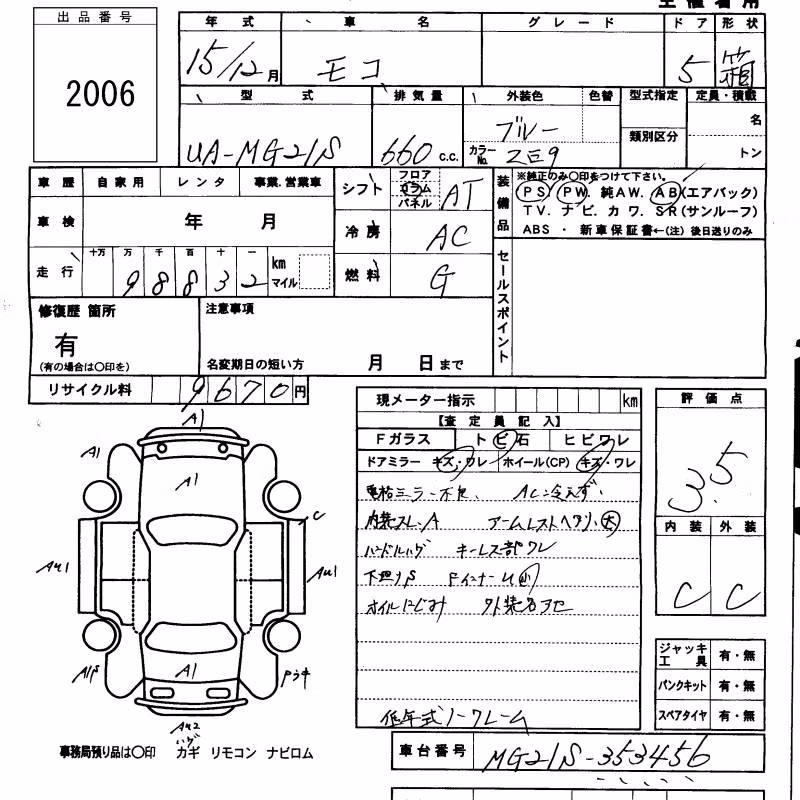 出品番号
2006
年式 車名 グレード ドア 形状
15/12月 モコ 5 箱
型式 排気量 外装色 色替 型式指定 定員・積載
UA-MG21S 660c.c. ブルー 名
カラーNo. ZE9 類別区分 トン
車歴 自家用 レンタ 事業.営業車
車検 年 月
走行 十万 万 千 百 十 一 km マイル
98832
シフト フロア コラム パネル AT
冷房 AC
燃料 G
装備品
※純正のみ〇印をつけて下さい。
PS. PW. 純AW. AB(エアバック)
TV. ナビ. カワ. SR(サンルーフ)
ABS ・ 新車保証書←(注)後日送りのみ
セールスポイント
修復歴 箇所
有
(有の場合は〇印を)
注意事項
名変期日の短い方 月 日まで
リサイクル料 9670円
現メーター指示 km
【査定員記入】
Fガラス トビ石 ヒビワレ
ドアミラー キズ・ワレ ホイール(CP) キズ・ワレ
電格ミラー不良、 AC冷えず
内装スレ、A アームレストヘタリ大
ハンドルハゲ キーレス部ワレ
下廻りS Fインナー
オイルにじみ 外装色アセ
低年式ノークレーム
評価点
3.5
内装 外装
C C
ジャッキ工具 有・無
パンクキット 有・無
スペアタイヤ 有・無
車台番号 MG21S-353456
A1
A1
A1
A1
C
AU1
AU1
A1S
A1
AU2
ハゲ
事務局預り品は〇印 カギ リモコン ナビロム